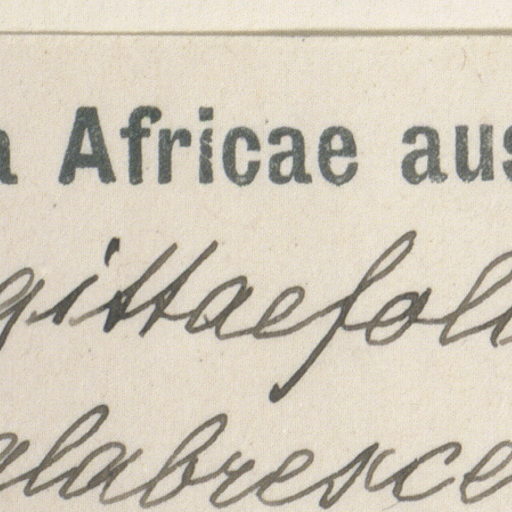 a Africae aus
gittaefoli
alabresce